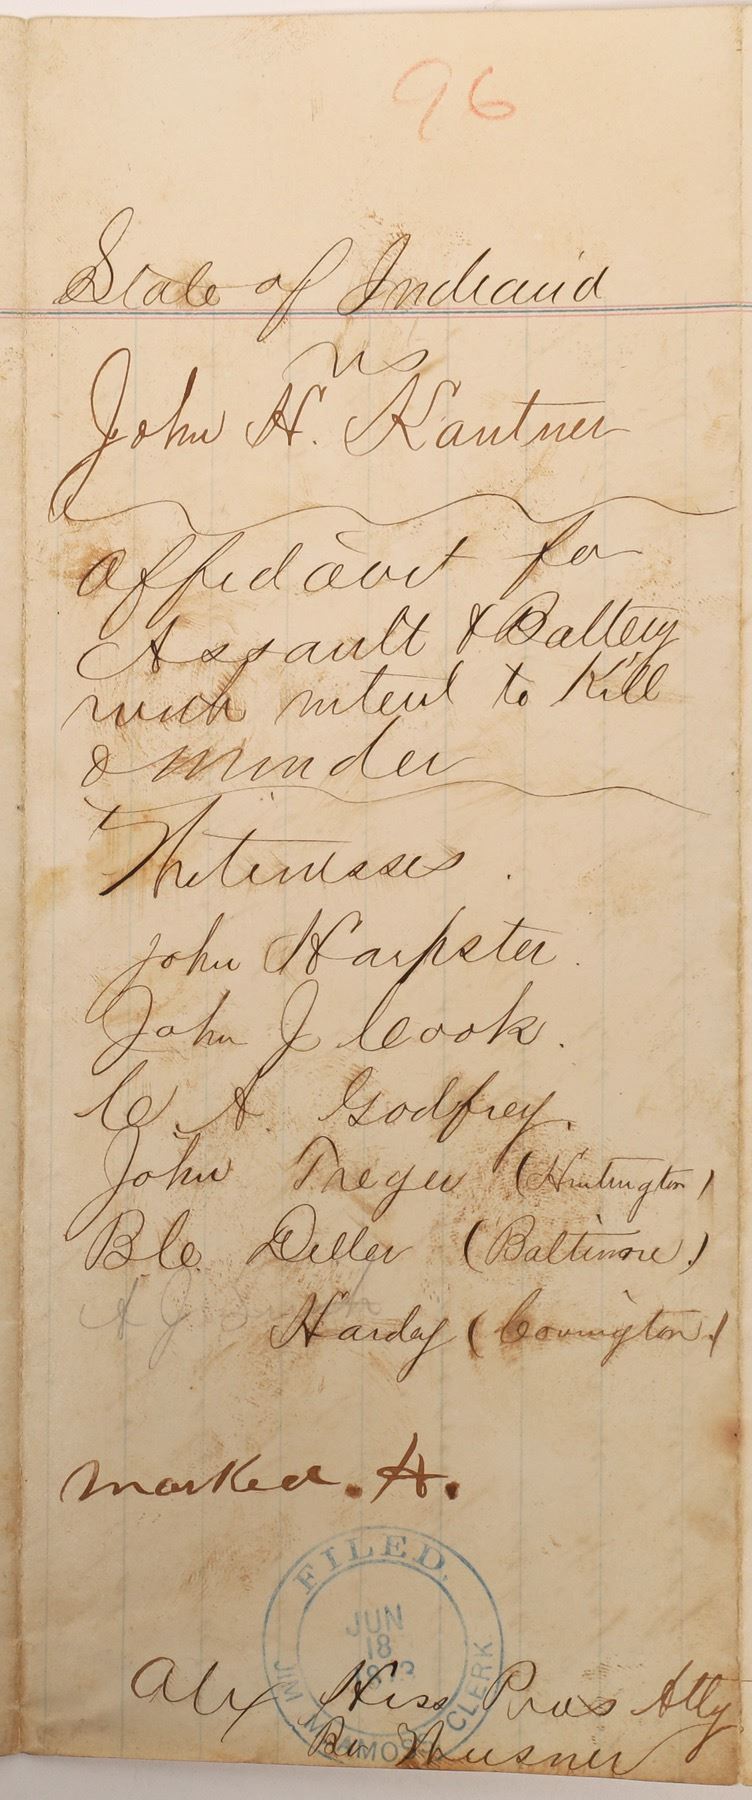 96
State of Indiana
vs
John H. Kantner
Affidavit for
Assault & Battery
with intent to Kill
& murder
Witnesses.
John Harpster.
John J Cook.
C. A. Godfrey.
John Treyer (Huntington)
B C. Deller (Baltimore)
Hardy (Covington)
marked. H.
FILED.
JUN
18
JIM
CLERK
Alx Hess Pros Atty